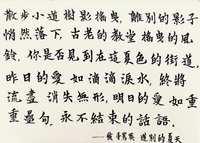 散步小道樹影搖曳，離別的影子
悄然落下，古老的教堂搖曳的風
鈴，你是否見到在這夏色的街道，
昨日的愛如滴滴淚水，終將
流盡消失無形，明日的愛如重
重疊句，永不結束的話語．
道別的夏天